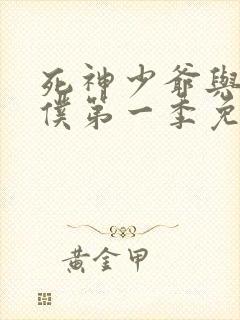 死神少爺與
僕第一季免
黃金甲